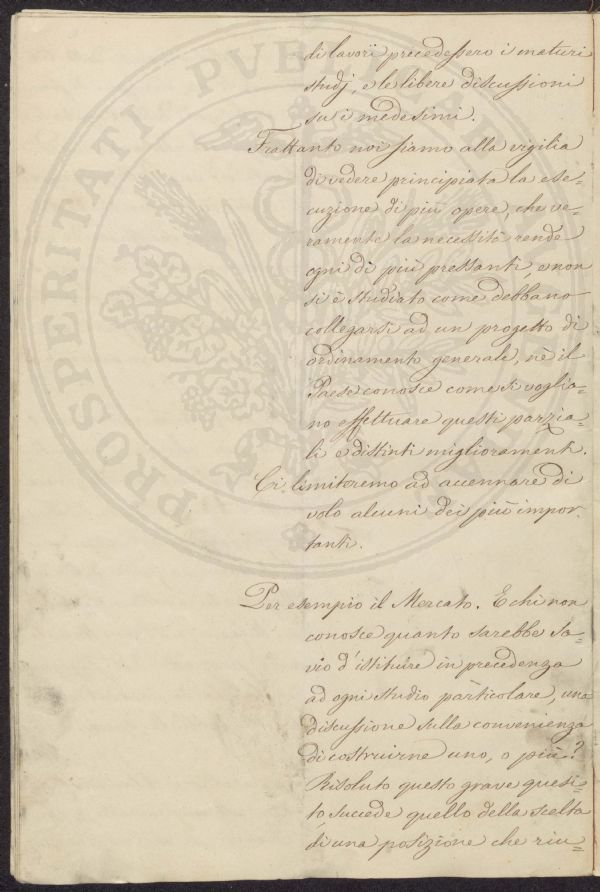 di lavori precedessero i maturi
studj, e le libere discussioni
su i medesimi.
Frattanto noi siamo alla vigilia
di vedere principiata la ese=
cuzione di più opere, che ve=
ramente la necessità rende
ogni dì più pressanti, e non
si è studiato come debbano
collegarsi ad un progetto di
ordinamento generale, nè il
Paese conosce come si voglia=
no effettuare questi parzia=
li e distinti miglioramenti.
Ci limiteremo ad accennare di
volo alcuni dei più impor=
tanti.
Per esempio il Mercato. E chi non
conosce quanto sarebbe sa=
vio d'istituire in precedenza
ad ogni studio particolare, una
discussione sulla convenienza
di costruirne uno, o più?
Risoluto questo grave quesi=
to, succede quello della scelta
di una posizione che riu=
PROSPERITATI PUBLICAE